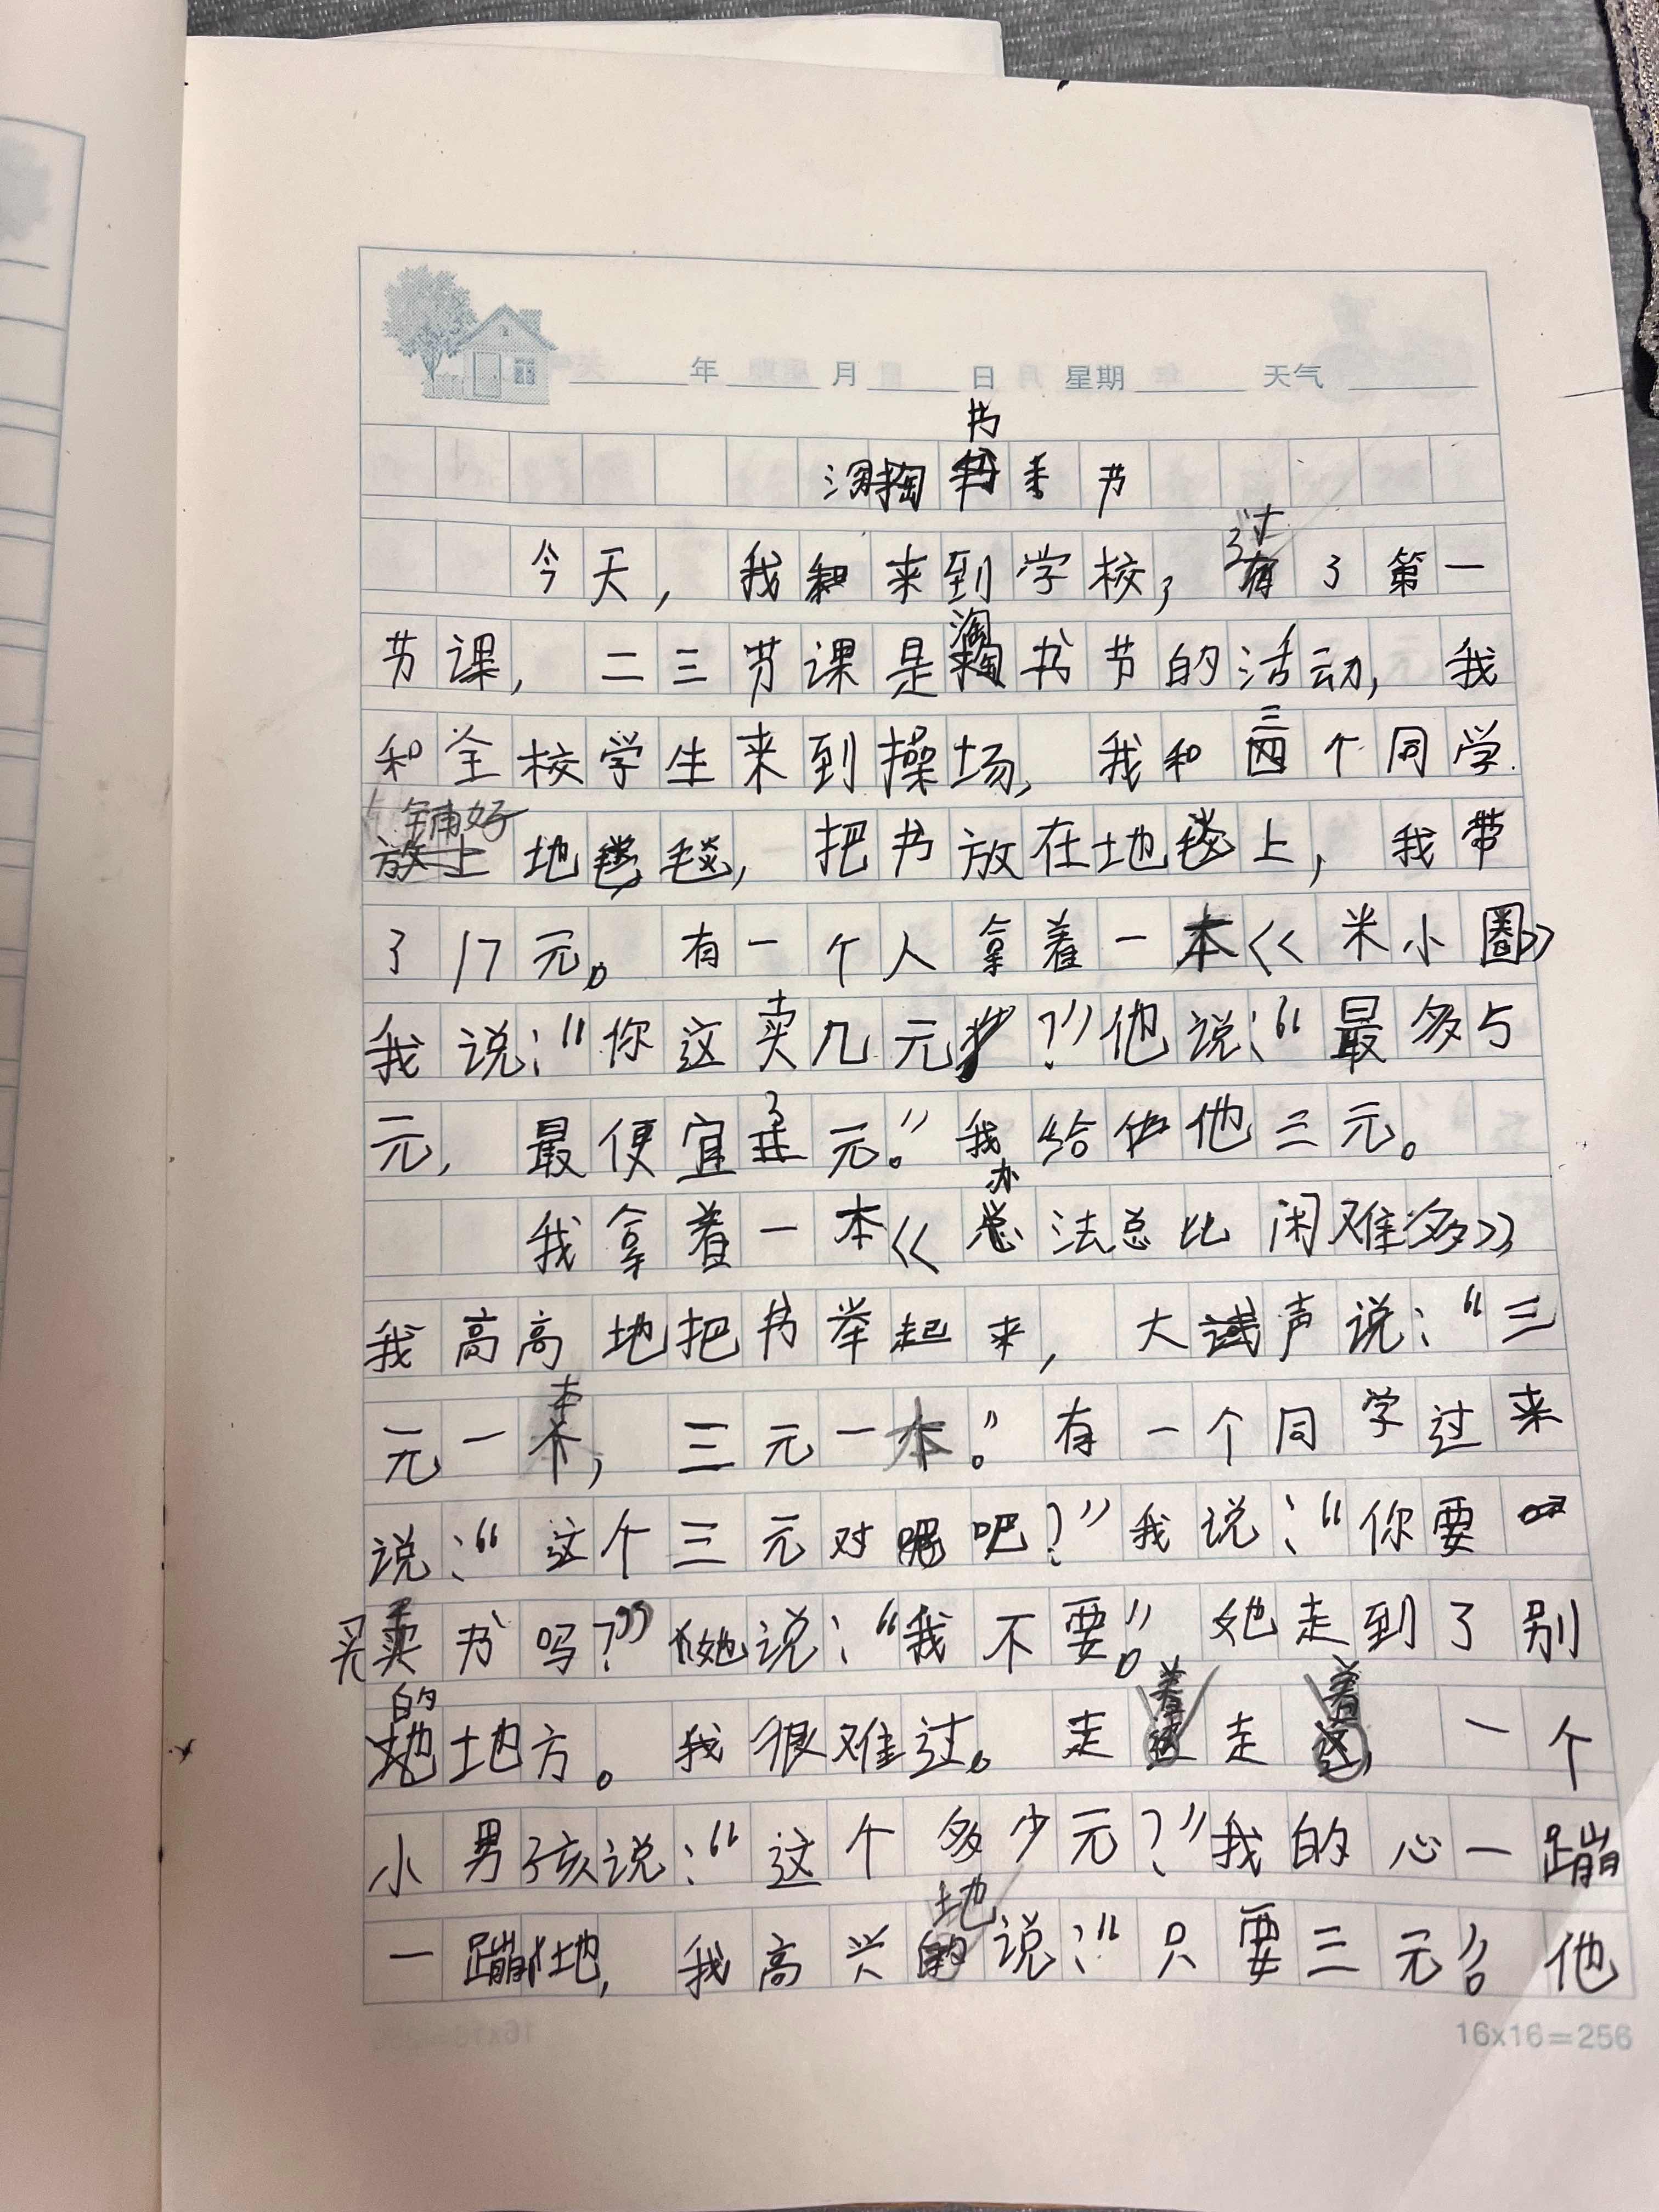 年 月 日 星期 天气
淘书节
今天，我来到学校，过了第一
节课，二三节课是淘书节的活动，我
和全校学生来到操场，我和三个同学
铺好地毯，把书放在地毯上，我带
了17元。有一个人拿着一本《米小圈》
我说：“你这卖几元？”他说：“最多5
元，最便宜3元。”我给他三元。
我拿着一本《办法总比闲难多》
我高高地把书举起来，大声说：“三
元一本，三元一本。”有一个同学过来
说：“这个三元对吧？”我说：“你要
买书吗？”她说：“我不要”。她走到了别
的地方。我很难过。走着走着，一个
小男孩说：“这个多少元？”我的心一蹦
一蹦地，我高兴地说：“只要三元”。他
16x16=256